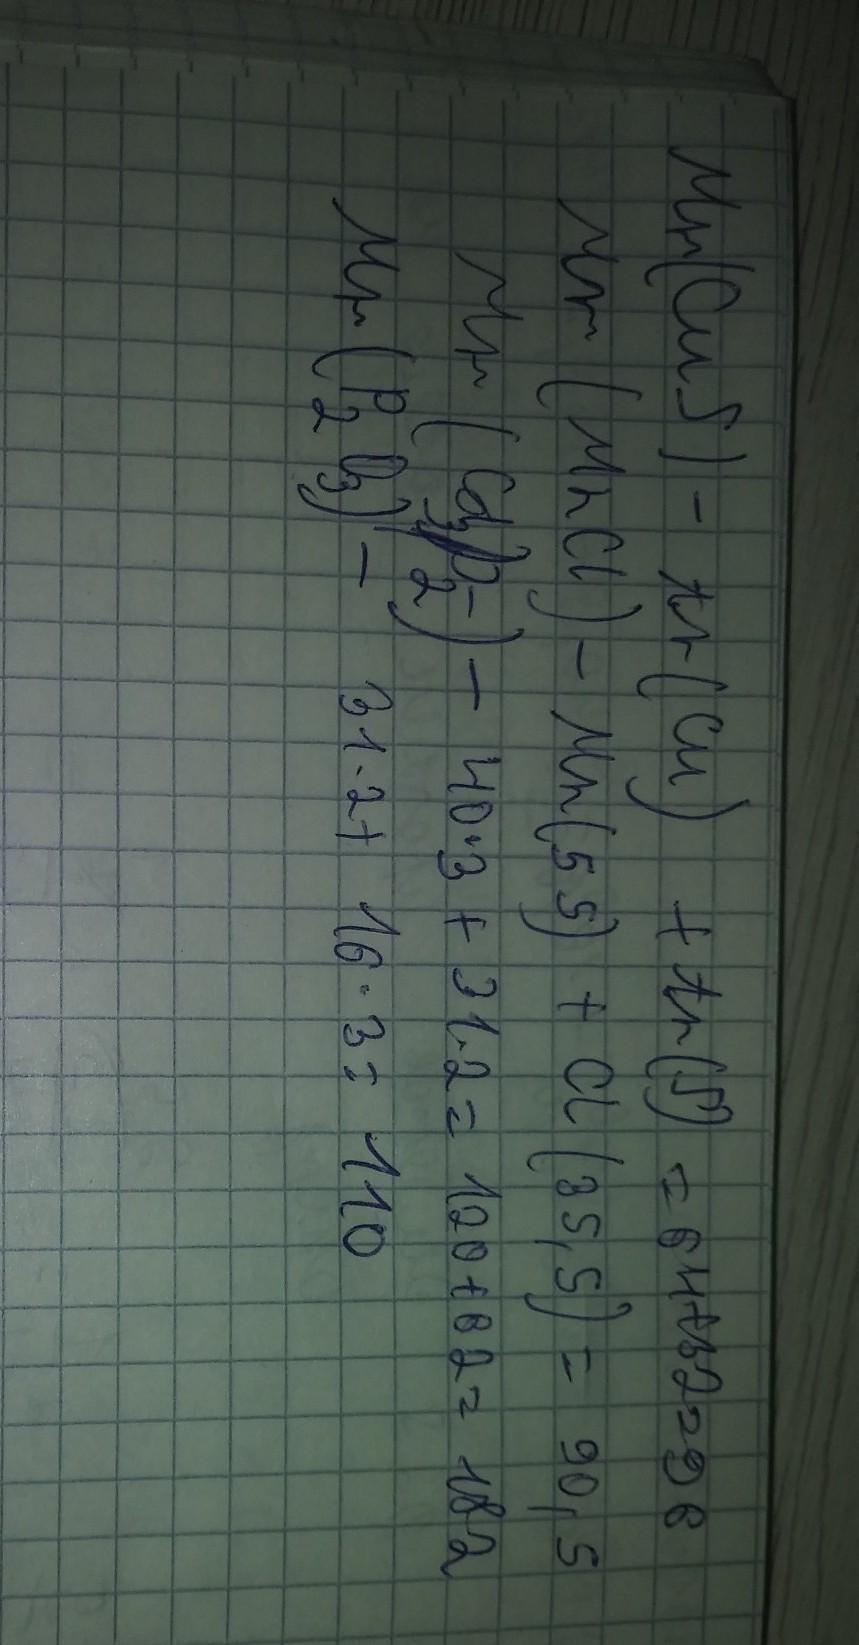 Mr(CuS) - Ar(Cu) + Ar(S) = 64+32=96
Mr (MnCl) - Mn(55) + Cl (35,5) = 90,5
Mr (Ca3P2) - 40·3 + 31·2 = 120+62= 182
Mr (P2O3) - 31·2+ 16·3= 110